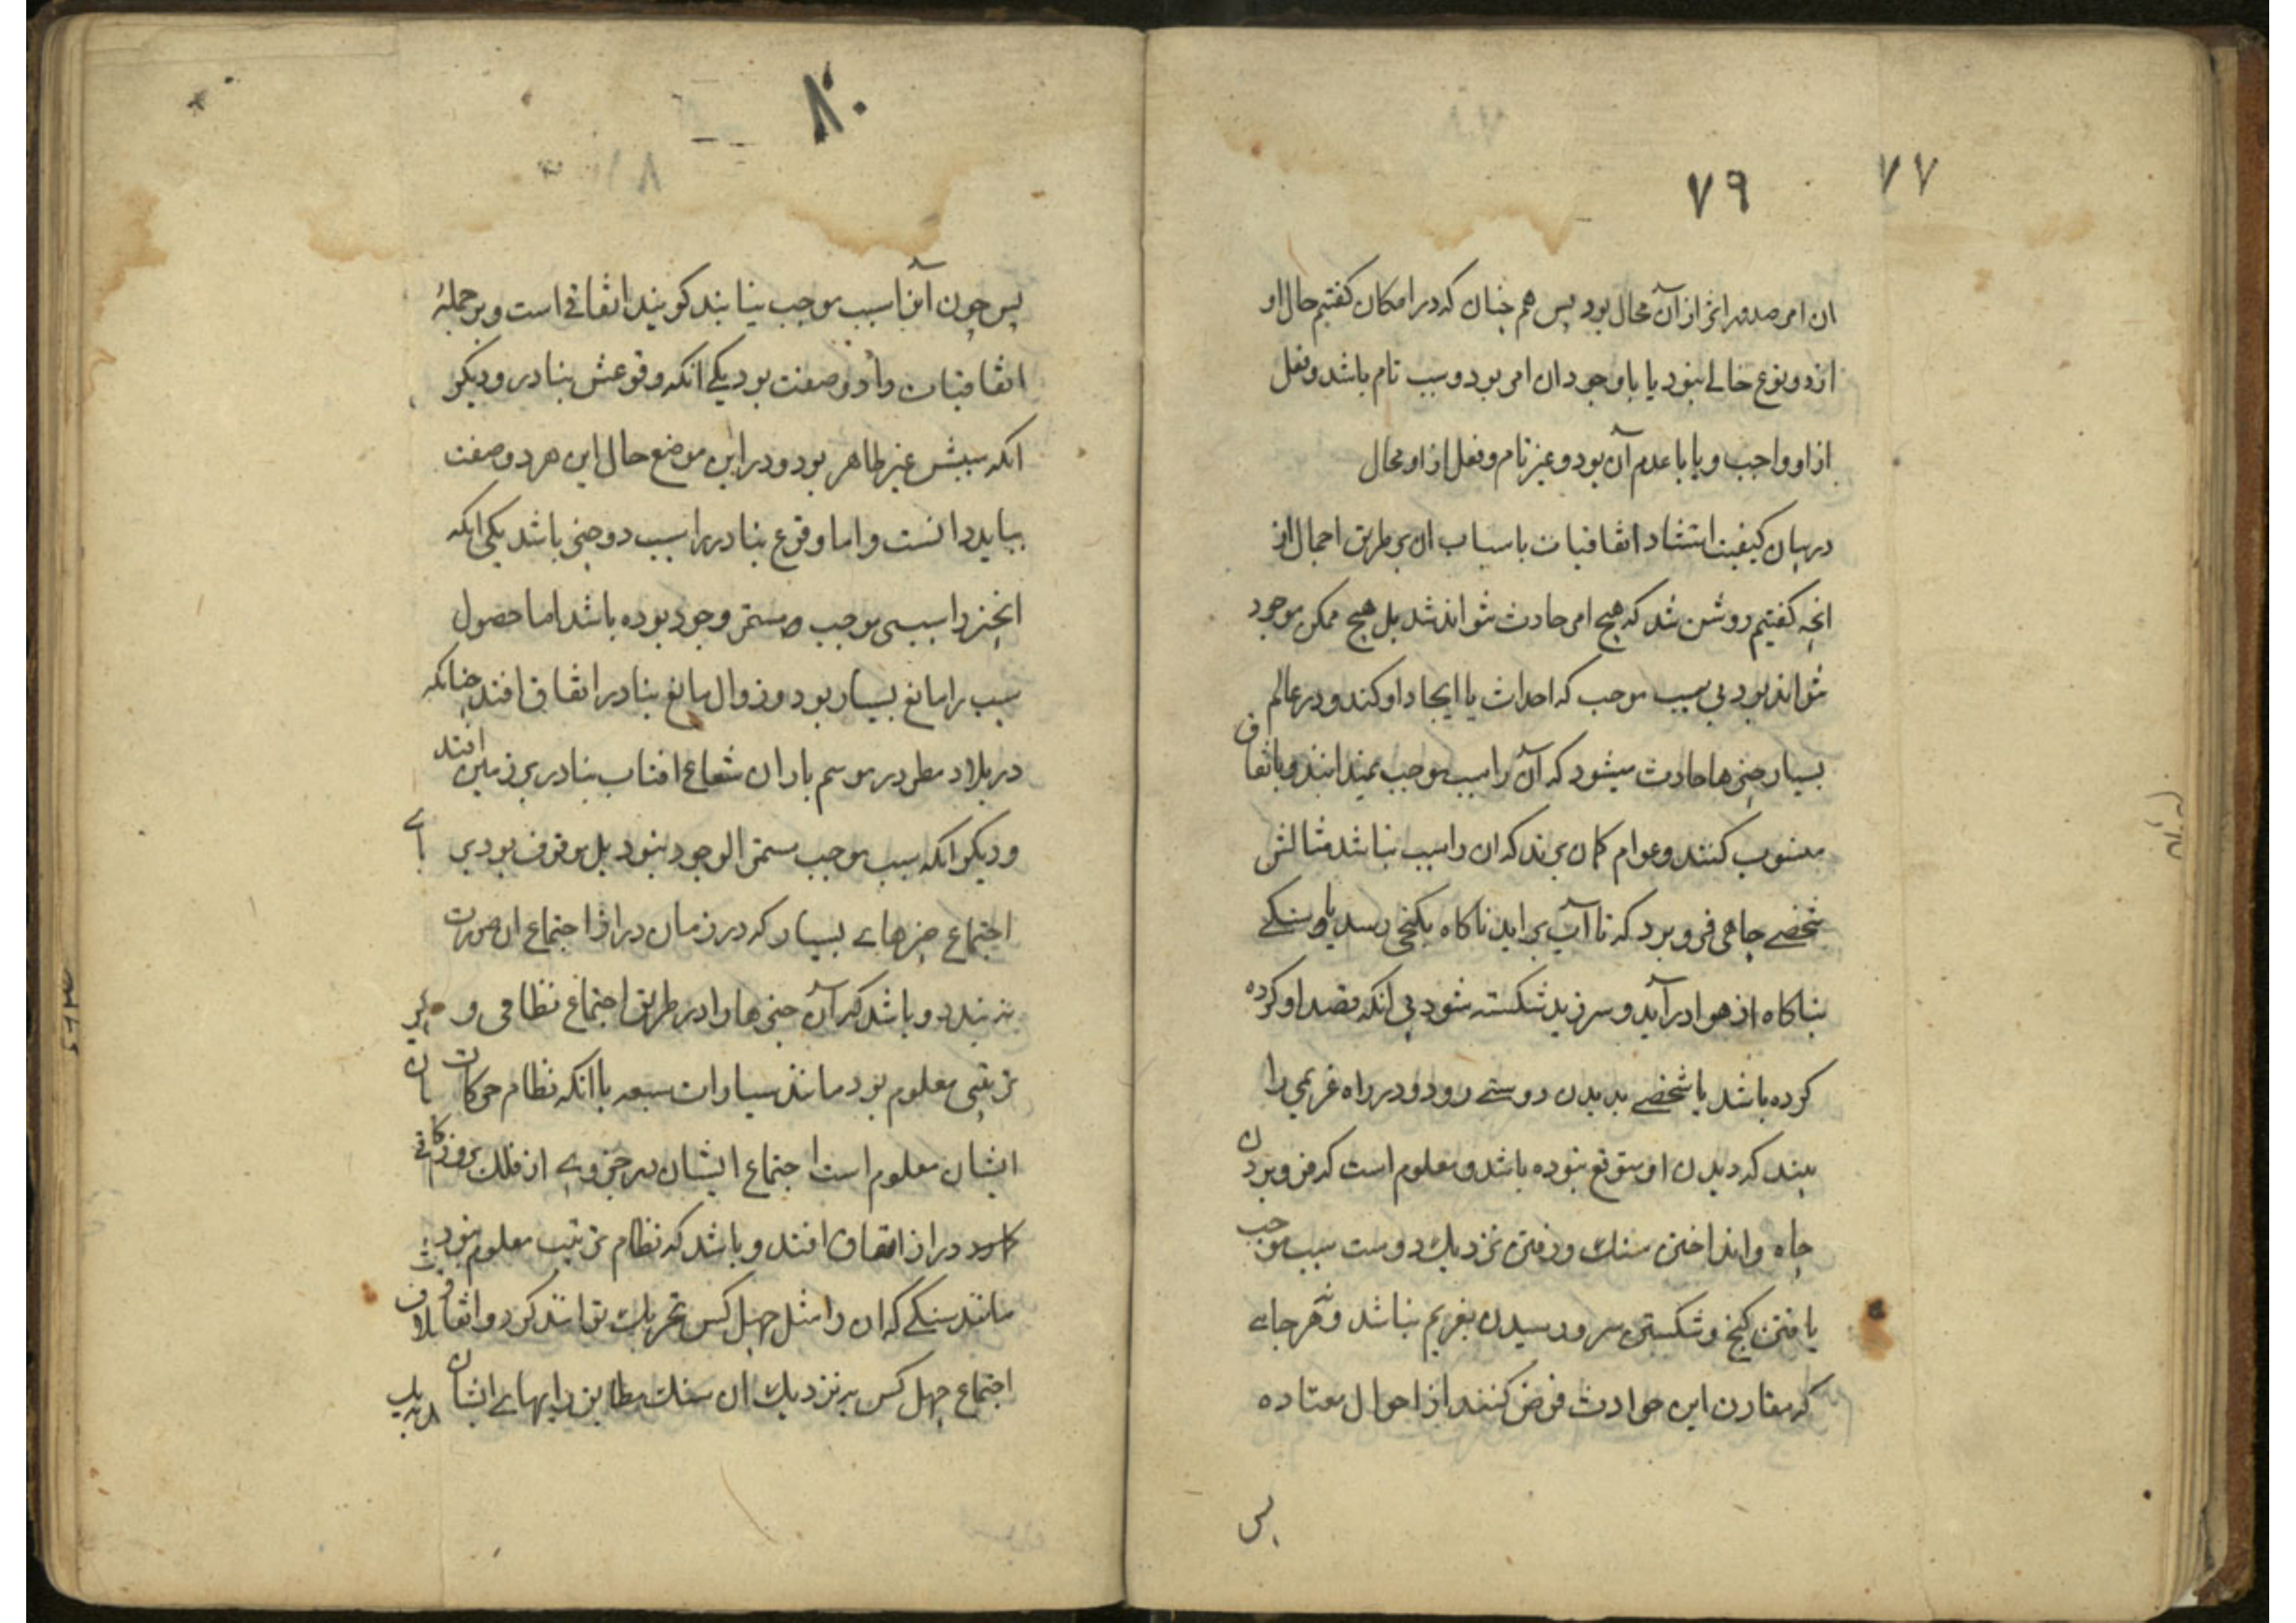 ۷۷
۷۹
ان امر صدور اثر از آن محال بود پس هم چنان که در امکان کفتیم حال او
از دو نوع خالے نبود یا با وجود ان امر بود و سبب تام باشد و فعل
از او واجب و یا با عدم آن بود و غیر تام و فعل از او محال
در بیان کیفیت استناد اتفاقیات باسباب ان بر طریق اجمال از
انچه کفتیم روشن شد که هیچ امر حادث نتواند شد بل هیچ ممکن موجود
نتواند بود بی سبب موجب که احداث یا ایجاد او کند و در عالم
بسیار چیزها حادث میشود که آن را سبب موجب نمیدانند و باتفاق
منسوب کنند و عوام کمان برند که ان را سبب نباشد مثالش
شخصے چاهی فرو برد که تا آب براید ناکاه بکنجی رسد یا سنکے
بناکاه از هوا در آید و سر زید شکسته شود بی انکه قصد او کرده
کرده باشد یا شخصے بدیدن دوستے رود و در راه غریمی را
بیند که دیدن او متوقع نبوده باشد و معلوم است که فرو بردن
چاه و انداختن سنك و رفتن نزدیك دوست سبب موجب
یافتن کنج و شکستن سر و رسیدن بغریم نباشد و هر جاے
که مقارن این حوادث فرض کنند از احوال معتاده
پس
۸۰
پس چون آنرا سبب موجب نیابند کویند اتفاقے است و بر جملهٔ
اتفاقیات را دو صفت بود یکے انکه وقوعش بنادر و دیکر
انکه سببش غیر ظاهر بود و در این موضع حال این هر دو صفت
بباید دانست و اما وقوع بنادر را سبب دو چیز باشد یکی انکه
انچیز را سببی موجب و مستمر وجود بوده باشد اما حصول
سبب را مانع بسیار بود و زوال مانع بنادر اتفاق افتد چنانکه
در بلاد مطر در موسم باران شعاع افتاب بنادر بر زمین افتد
و دیکر انکه سبب موجب مستمر الوجود نبود بل موقوف بود بر
اجتماع چیزهاے بسیار که در زمان دراز اجتماع ان صورت
نه بندد و باشد که آن چیزها را در طریق اجتماع نظامی و
ترتیبی معلوم بود مانند سیارات سبعه با انکه نظام حرکات
ایشان معلوم است اجتماع ایشان در جزوے از فلك بروزکار
دراز اتفاق افتد و باشد که نظام ترتیب معلوم نبود
مانند سنکے که ان را مثل چهل کس تحریك تواند کرد و اتفاق
اجتماع چهل کس به نزدیك ان سنك مطابق رایهاے ایشان